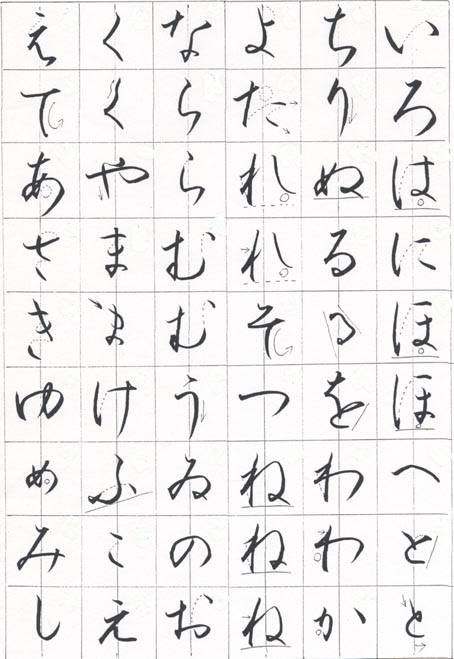 いろはにほほへとと
ちりぬるるをわわか
よたれれそつねねね
ならられむむうゐのお
くくやままけふこえ
えてあさきゆめみし